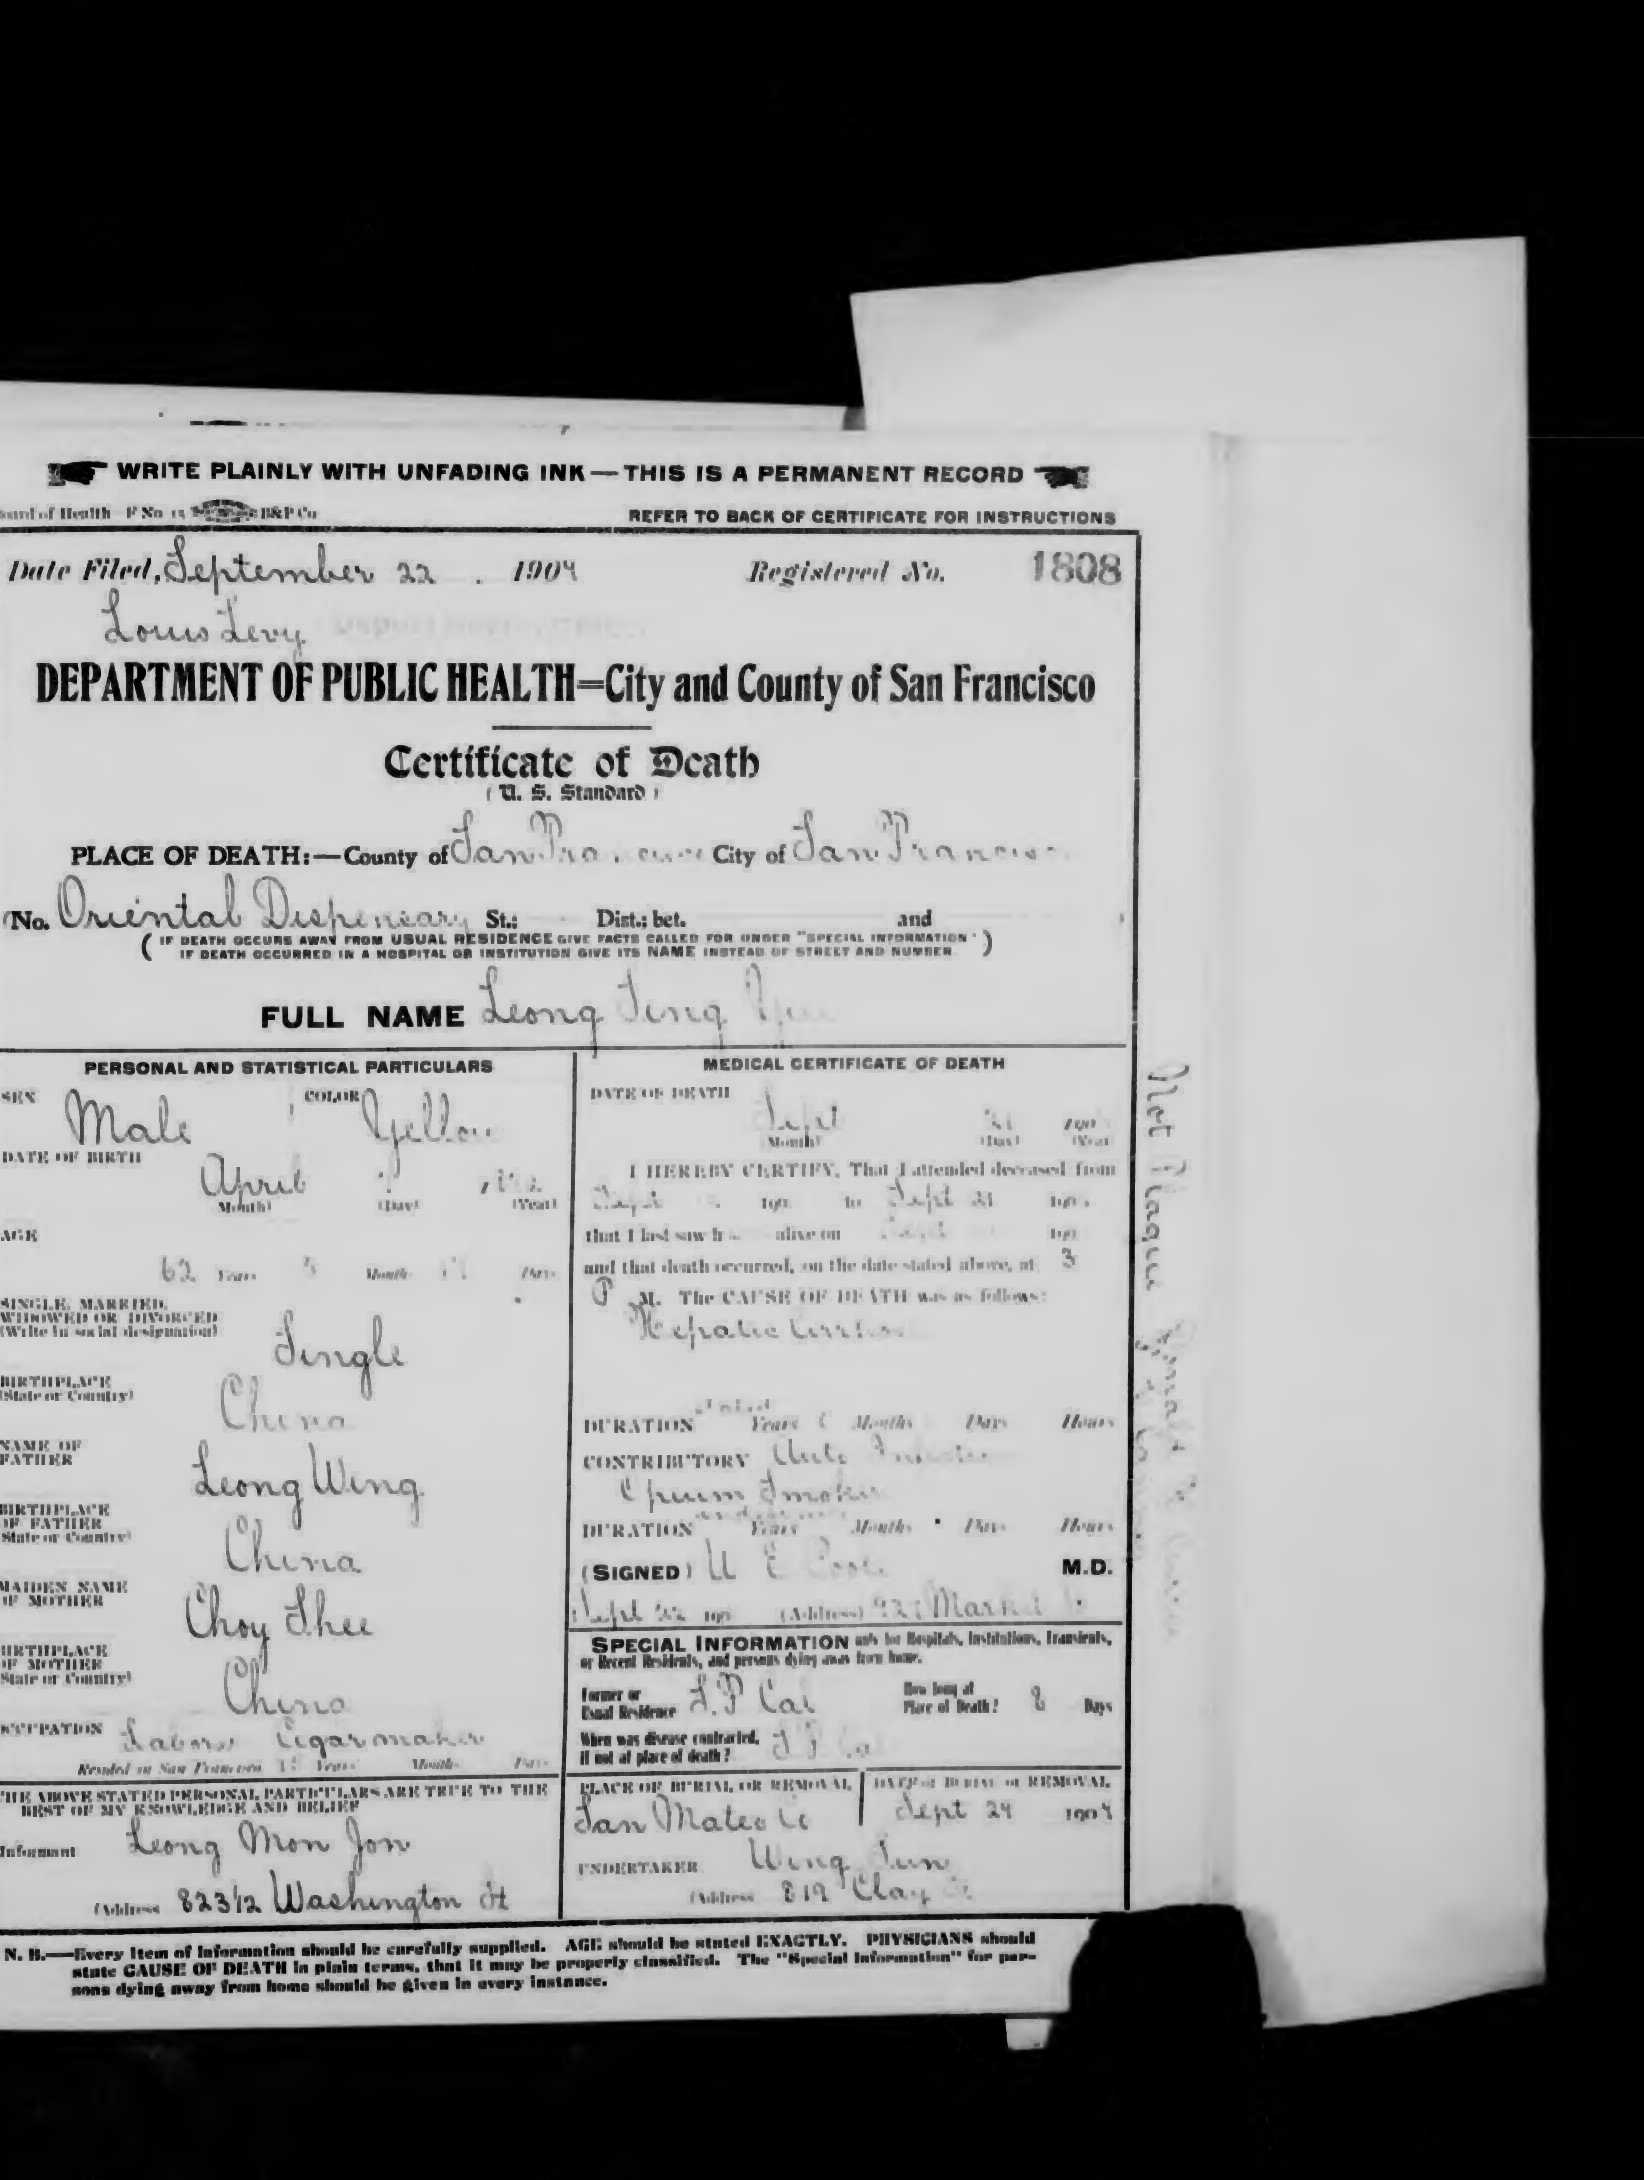 WRITE PLAINLY WITH UNFADING INK—THIS IS A PERMANENT RECORD
of Health F No. 15 B&P Co
REFER TO BACK OF CERTIFICATE FOR INSTRUCTIONS
Date Filed, September 22. 1904 Registered No. 1808
Louis Levy
DEPARTMENT OF PUBLIC HEALTH=City and County of San Francisco
Certificate of Death
(U. S. Standard)
PLACE OF DEATH:—County of San Francisco City of San Francisco
No. Oriental Dispensary St.; Dist.; bet. and
(IF DEATH OCCURS AWAY FROM USUAL RESIDENCE GIVE FACTS CALLED FOR UNDER "SPECIAL INFORMATION"
IF DEATH OCCURRED IN A HOSPITAL OR INSTITUTION GIVE ITS NAME INSTEAD OF STREET AND NUMBER.)
FULL NAME Leong Sing
PERSONAL AND STATISTICAL PARTICULARS
SEX Male COLOR Yellow
DATE OF BIRTH
April
(Month) (Day) (Year)
AGE
62 Years 5 Months Days
SINGLE, MARRIED,
WIDOWED OR DIVORCED
(Write in social designation)
Single
BIRTHPLACE
(State or Country)
China
NAME OF
FATHER
Leong Wing
BIRTHPLACE
OF FATHER
(State or Country)
China
MAIDEN NAME
OF MOTHER
Choy Shee
BIRTHPLACE
OF MOTHER
(State or Country)
China
OCCUPATION Cigarmaker
Resided in San Francisco Years Months Days
THE ABOVE STATED PERSONAL PARTICULARS ARE TRUE TO THE
BEST OF MY KNOWLEDGE AND BELIEF
Informant Leong Mon Jon
(Address 823 1/2 Washington St
MEDICAL CERTIFICATE OF DEATH
DATE OF DEATH
Sept 21 190
(Month) (Day) (Year)
I HEREBY CERTIFY, That I attended deceased from
Sept 190 to Sept 21 190
that I last saw h alive on Sept 190
and that death occurred, on the date stated above, at 3
P M. The CAUSE OF DEATH was as follows:
Hepatic Cirrhosis
DURATION Years Months Days Hours
CONTRIBUTORY Auto
Opium Smoker
DURATION Years Months Days Hours
(SIGNED) M.D.
Sept 22 190 (Address) Market
SPECIAL INFORMATION only for Hospitals, Institutions, Transients,
or Recent Residents, and persons dying away from home.
Former or
Usual Residence S.F Cal
How long at
Place of Death? 8 Days
When was disease contracted,
If not at place of death? S F Cal
PLACE OF BURIAL OR REMOVAL
San Mateo Co
DATE of BURIAL or REMOVAL
Sept 24 1904
UNDERTAKER Wing Sun
(Address 819 Clay St
N. B.—Every item of information should be carefully supplied. AGE should be stated EXACTLY. PHYSICIANS should
state CAUSE OF DEATH in plain terms, that it may be properly classified. The "Special Information" for per-
sons dying away from home should be given in every instance.
Not Plague